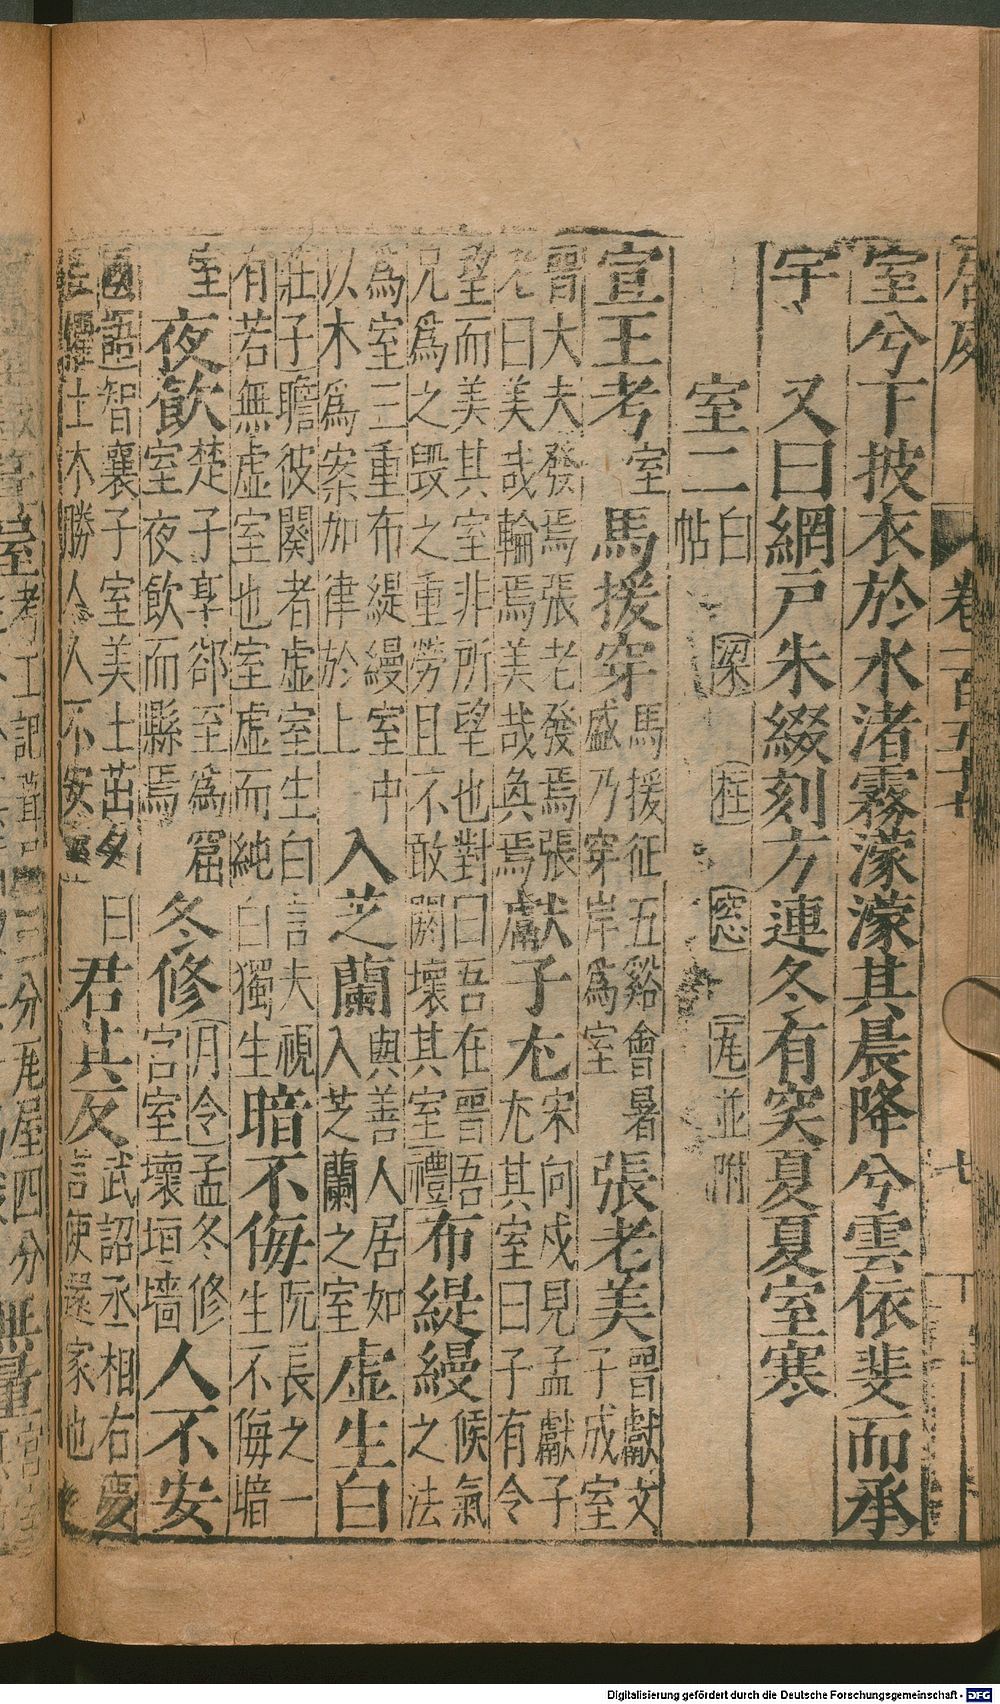 居處 卷一百五十七 七
室兮下披衣於水渚霧濛濛其晨降兮雲依斐而承
宇 又曰網戶朱綴刻方連冬有突夏夏室寒
室二 白帖 梁 柱 窓 瓦並附
宣王考 室 馬援穿 馬援征五谿會暑盛乃穿岸為室 張老美 晉獻文子成室
晉大夫發焉張老發焉張老曰美哉輪焉美哉奐焉 獻子尤 宋向戍見孟獻子尤其室曰子有令
望而美其室非所望也對曰吾在晉吾兄為之毀之重勞且不敢闕壞其室禮 布緹縵 候氣之法
為室三重布緹縵室中以木為案加律於上 入芝蘭 與善人居如入芝蘭之室 虛生白
莊子瞻彼闋者虛室生白言夫視有若無虛室也室虛而純白獨生 暗不侮 阮長之一生不侮暗
室 夜飲 楚子享郤至為窟室夜飲而縣焉 冬修 月令孟冬修宮室壞垣墻 人不安
國語智襄子室美土茁夕曰土木勝人人不安 君其反 武詔丞相右言使還家也
考工記 三分瓦屋四分
Digitalisierung gefördert durch die Deutsche Forschungsgemeinschaft - DFG